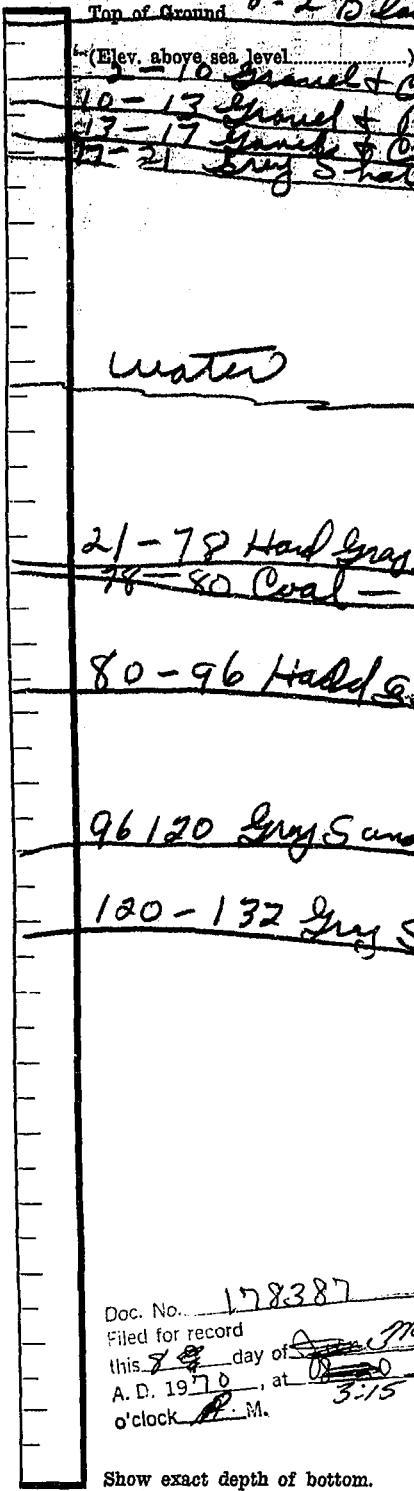 Top of Ground 0-2 Bla
(Elev. above sea level....................)
2-10 Gravel &
10-13 Gravel &
13-17 Gravel &
17-21 Grey Shal
water
21-78 Hard Gray
78-80 Coal —
80-96 Hadd
96 120 Grey Sand
120-132 Grey S
Doc. No. 178387
Filed for record
this 8 day of
A. D. 1970, at
3:15
o'clock P. M.
Show exact depth of bottom.